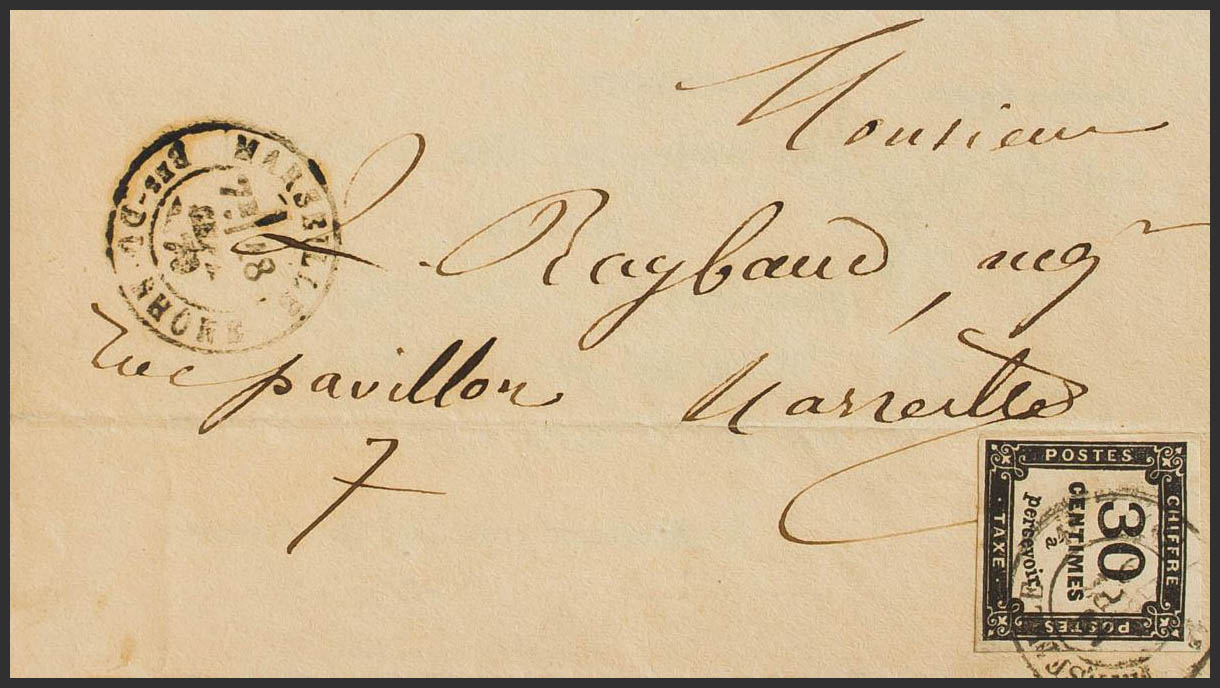 Monsieur
L. Raybaud, neg
rue pavillon Marseille
7
MARSEILLE
BES-DU-RHONE
7E
08
POSTES
CHIFFRE
TAXE
POSTES
30
CENTIMES
a
percevoir